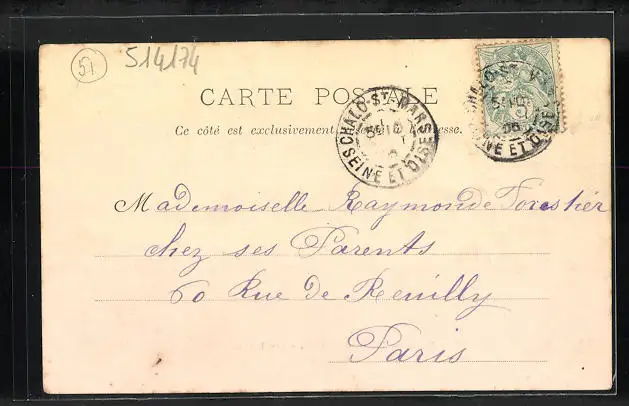 51 514174
CARTE POSTALE
Ce côté est exclusivement réservé à l'adresse.
CHALO-ST-MARS
SEINE ET OISE
CHALO-ST
NE ET OISE
Mademoiselle Raymonde Forestier
chez ses Parents
60 Rue de Reuilly
Paris